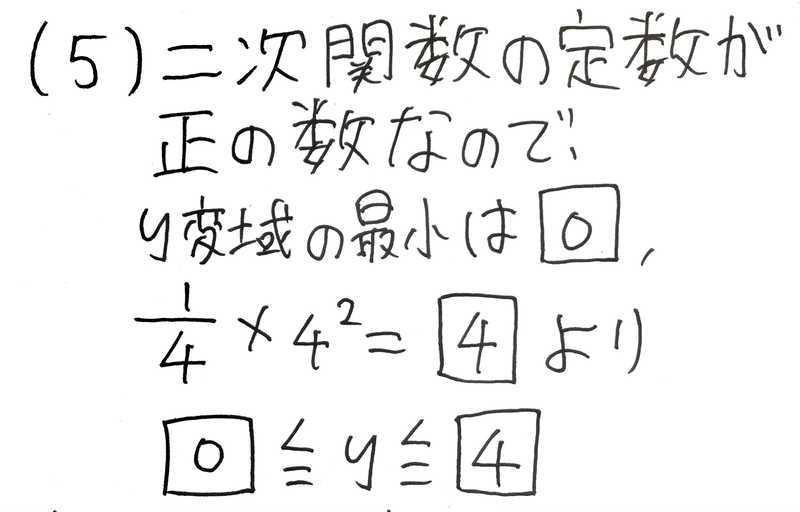 (5) 二次関数の定数が
正の数なので、
y変域の最小は 0 ,
1/4 × 4² = 4 より
0 ≦ y ≦ 4